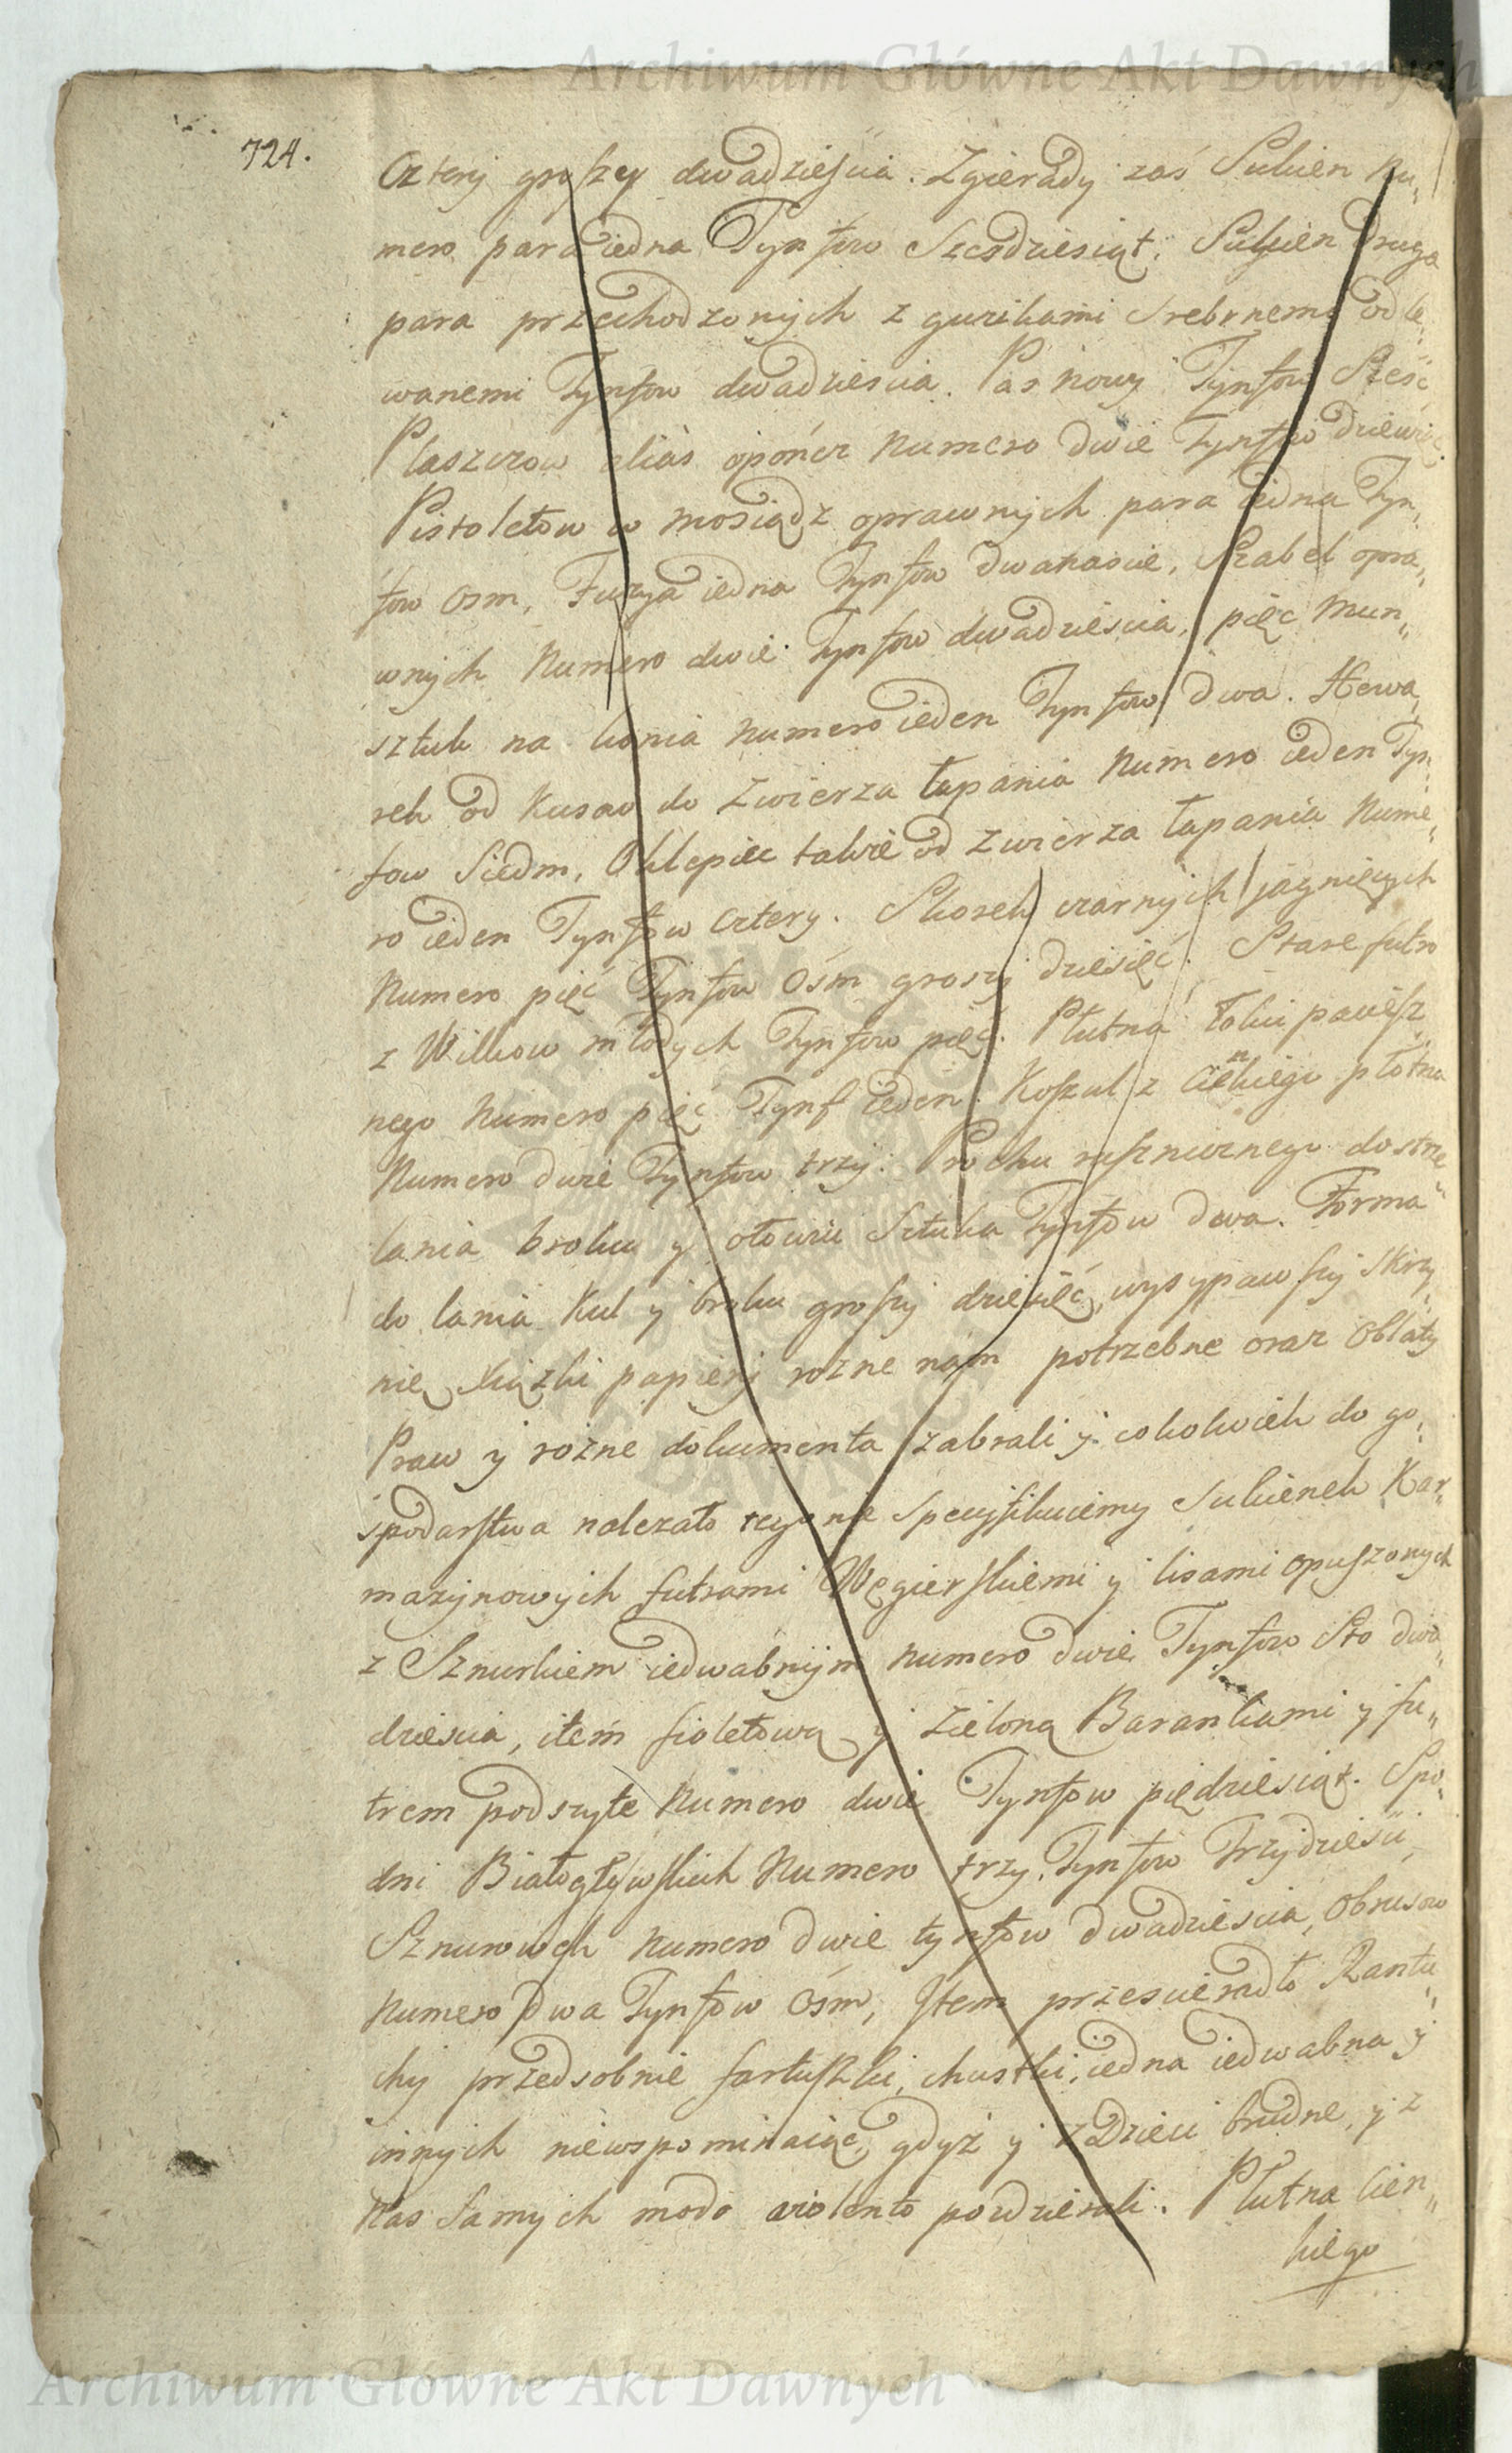 Archiwum Główne Akt Dawnych
724.
Czterÿ groszy dwadzieścia. Zgierady zaś Sukien nu„
mero para iedna Tynfow Szesdziesiąt; Sukien druga
para przechodzonÿch z guzikami srebrnemi odle„
wanemi Tynfow dwadziescia. Pas nowy Tynfow Sześć
Płaszczow aliàs opończ Numero dwie Tynfow dziewięć
Pistoletow w mosiądz oprawnÿch para iedna Tyn„
fow osm, Fuzya iedna Tynfow dwanascie, Szabel opra„
wnÿch Numero dwie Tynfow dwadziescia, pięc Mun„
sztuk na konia numero ieden Tynfow dwa. Newa„
rek od Kusow do zwierza łapania Numero ieden Tyn„
fow Siedm, Oklepiec także od zwierza łapania Nume„
ro ieden Tynfow cztery. Skorek czarnÿch jagnięcÿch
Numero pięć Tynfow Ośm groszÿ dziesięć. Stare futro
z Wilkow młodych Tynfow pięć. Płutna łokci paczesz„
nego Numero pięć Tynf ieden. Koszul z cienkiego płótna
Numero dwie Tynfow trzÿ. Prochu rusznicznego do strze„
lania broku y ołowiu Sztuka Tynfow dwa. Forma
do lania Kul y broku groszÿ dziesięć, wysypawszÿ skrzy„
nię xiązki papierÿ rozne nam potrzebne oraz Oblaty
Praw ÿ rożne dokumenta zabrali ÿ cokolwiek do go„
spodarstwa nalezało tego nie specyfikuiemy Sukienek Kar„
mazynowÿch futrami Węgierskiemi ÿ lisami opuszonych
z Sznurkiem iedwabnÿm numero dwie Tynfow Sto dwa„
dziescia, item fioletową ÿ zieloną Barankami ÿ fu„
trem podszyte Numero dwie Tynfow pięćdziesiąt. Spo„
dni Białogłowskich Numero trzy, Tynfow Trzydzieści,
Sznurowek numero dwie tynfow dwadziescia, Obrusow
Numero dwa Tynfow Ośm, Item przescieradło Rantu„
chy przedsobnie fartuszki, chustki, iedna iedwabna ÿ
innÿch niewspominaiąc, gdyż ÿ z Dzieci brudne, y z
Nas Samych modo violento pozdzierali. Płutna cien„
kiego
Archiwum Główne Akt Dawnych